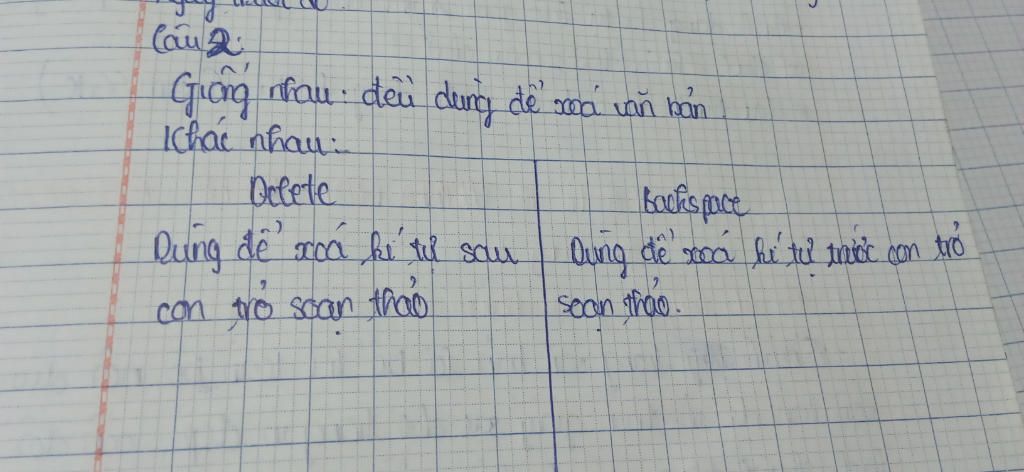 Câu 2:
Giống nhau: đều dùng để xoá văn bản
Khác nhau:
Delete
Dùng để xoá kí tự sau
con trỏ soạn thảo
Backspace
Dùng để xoá kí tự trước con trỏ
soạn thảo.